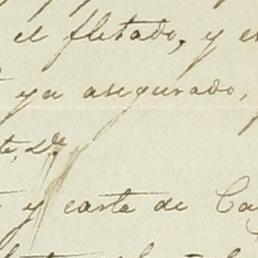 el fletado, y e
ya asegurado,
te, Dr.
y carta de Ca